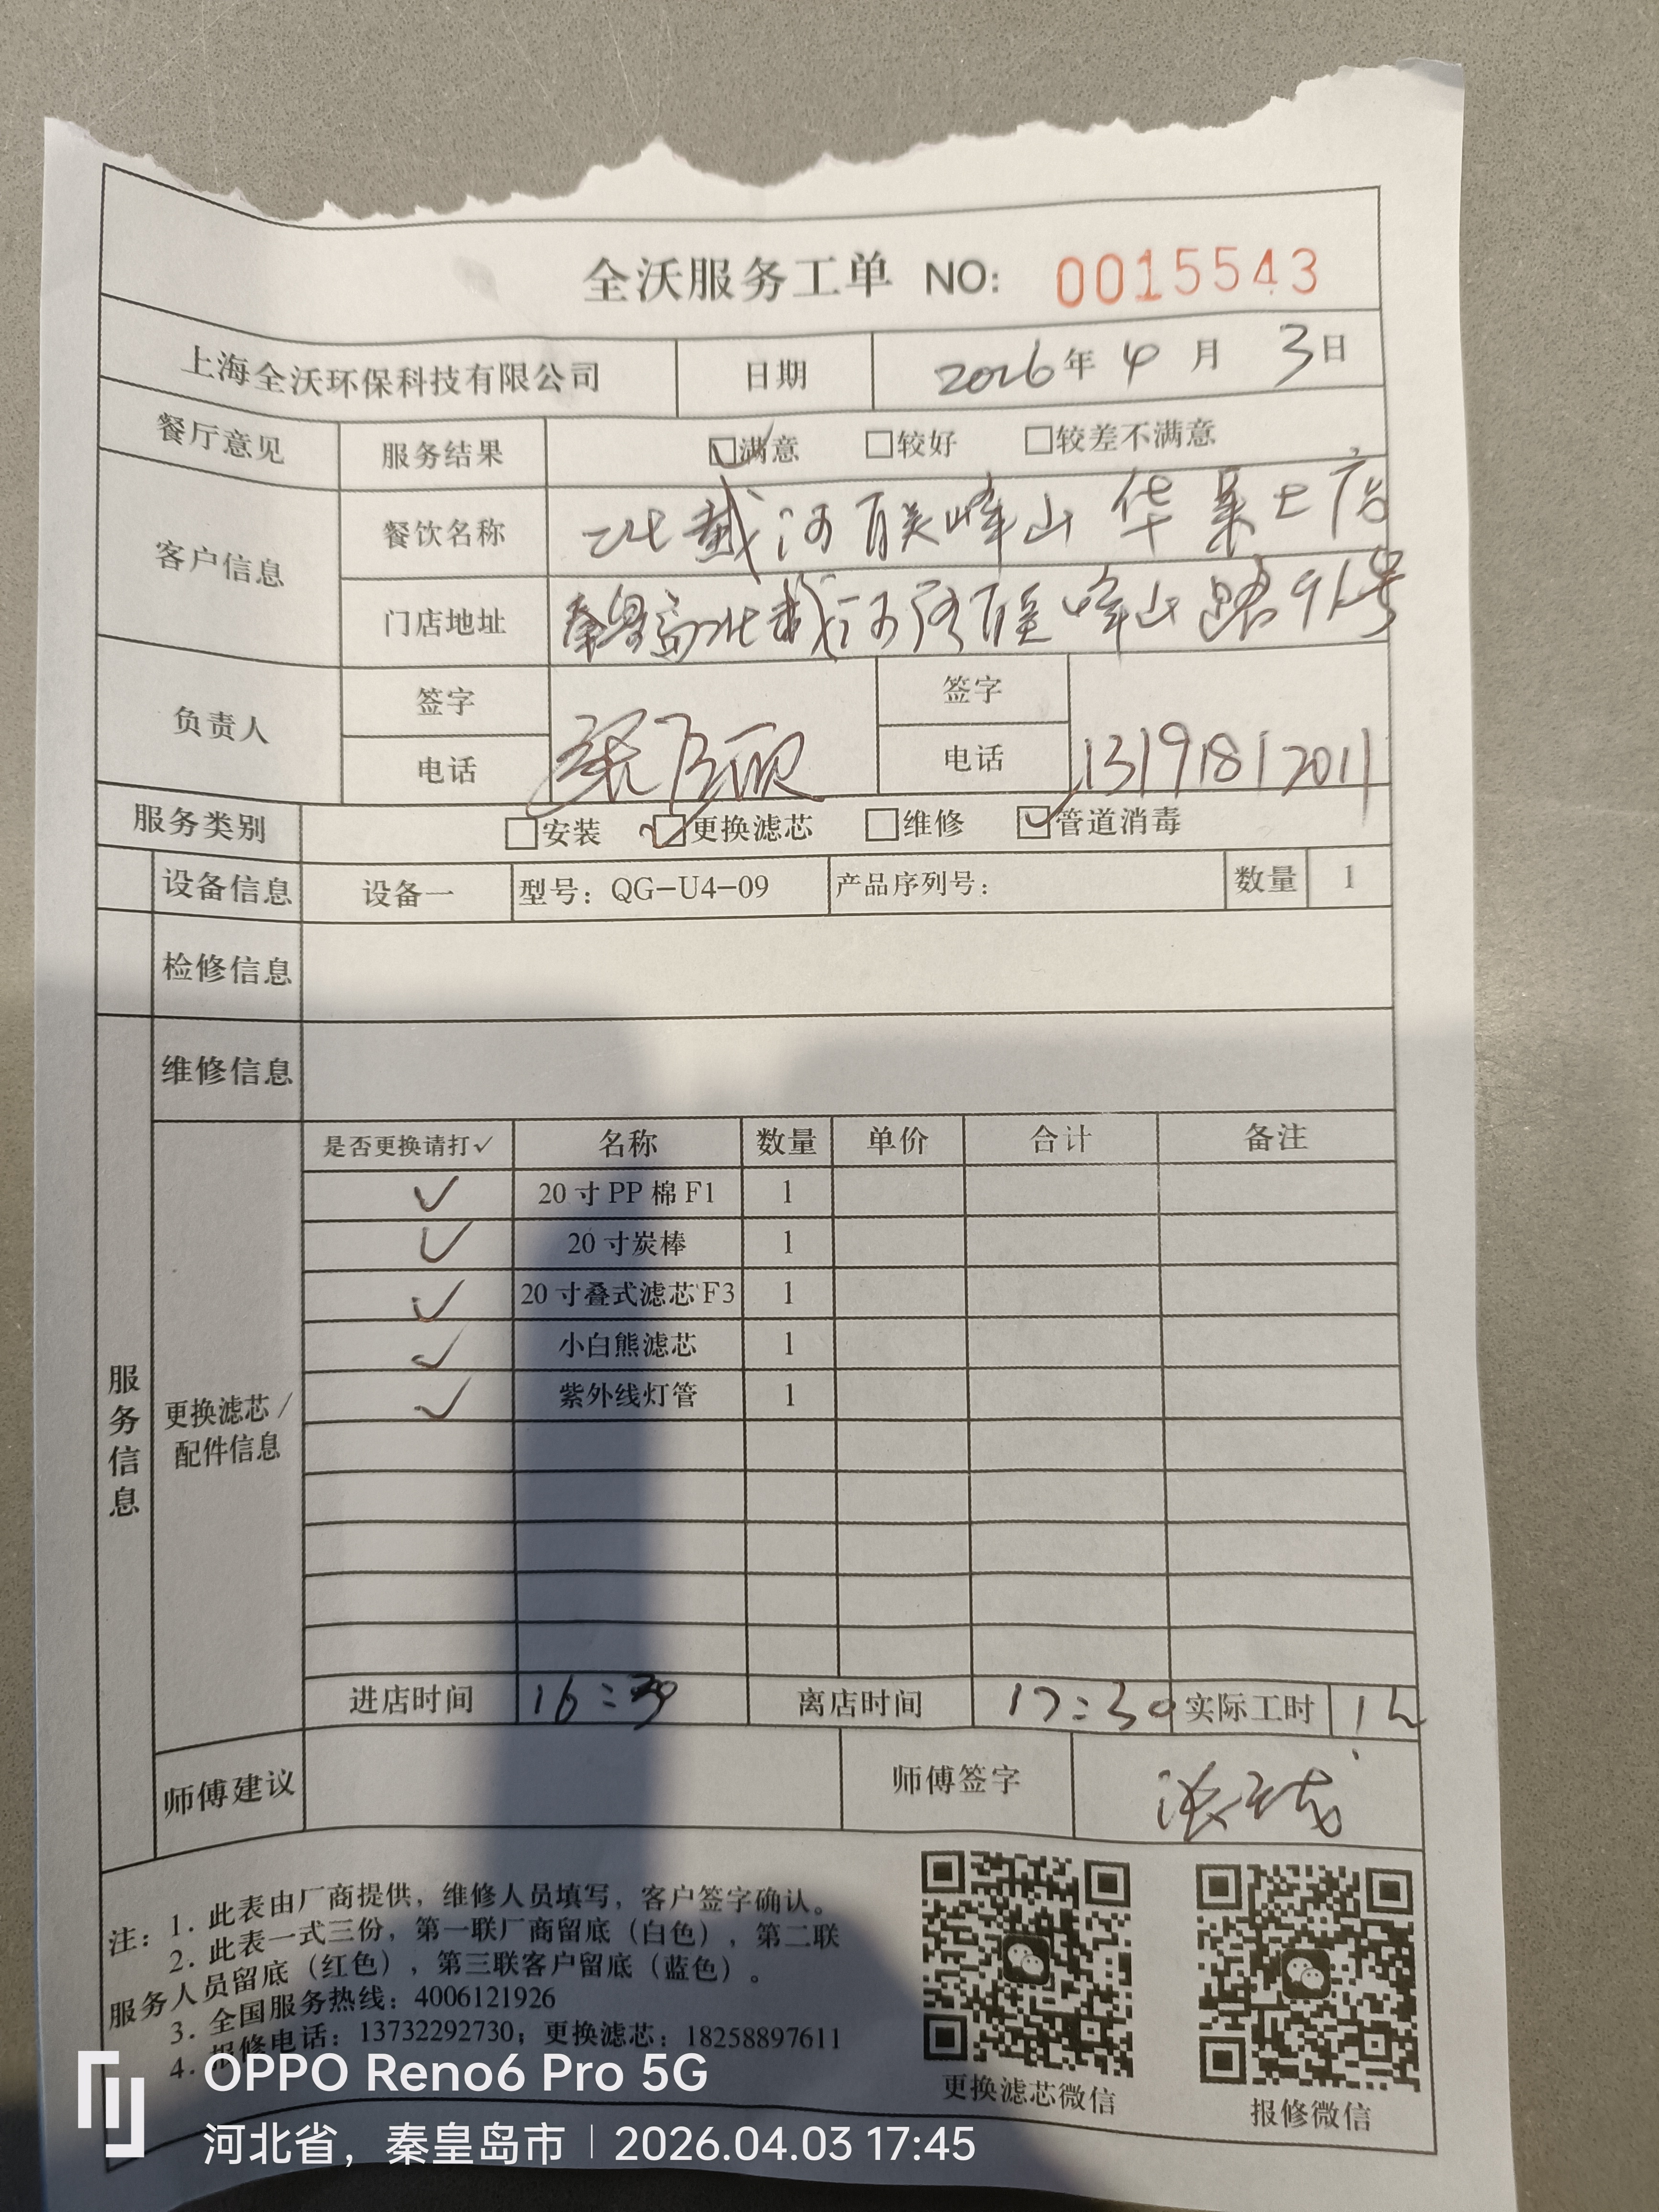 全沃服务工单 NO: 0015543
上海全沃环保科技有限公司 日期 2026年4月3日
餐厅意见 服务结果 ☑满意 □较好 □较差不满意
客户信息 餐饮名称 北戴河联峰山华莱士店
门店地址 秦皇岛北戴河联峰山路96号
负责人 签字 签字
电话 电话 13191812011
服务类别 □安装 ☑更换滤芯 □维修 ☑管道消毒
设备信息 设备一 型号：QG-U4-09 产品序列号： 数量 1
检修信息
维修信息
服务信息
更换滤芯/配件信息
是否更换请打✓ 名称 数量 单价 合计 备注
✓ 20寸PP棉F1 1
✓ 20寸炭棒 1
✓ 20寸叠式滤芯F3 1
✓ 小白熊滤芯 1
✓ 紫外线灯管 1
进店时间 16:30 离店时间 17:30 实际工时 1h
师傅建议 师傅签字
注：1. 此表由厂商提供，维修人员填写，客户签字确认。
2. 此表一式三份，第一联厂商留底（白色），第二联
服务人员留底（红色），第三联客户留底（蓝色）。
3. 全国服务热线：4006121926
4. 报修电话：13732292730；更换滤芯：18258897611
更换滤芯微信 报修微信
OPPO Reno6 Pro 5G
河北省，秦皇岛市 | 2026.04.03 17:45